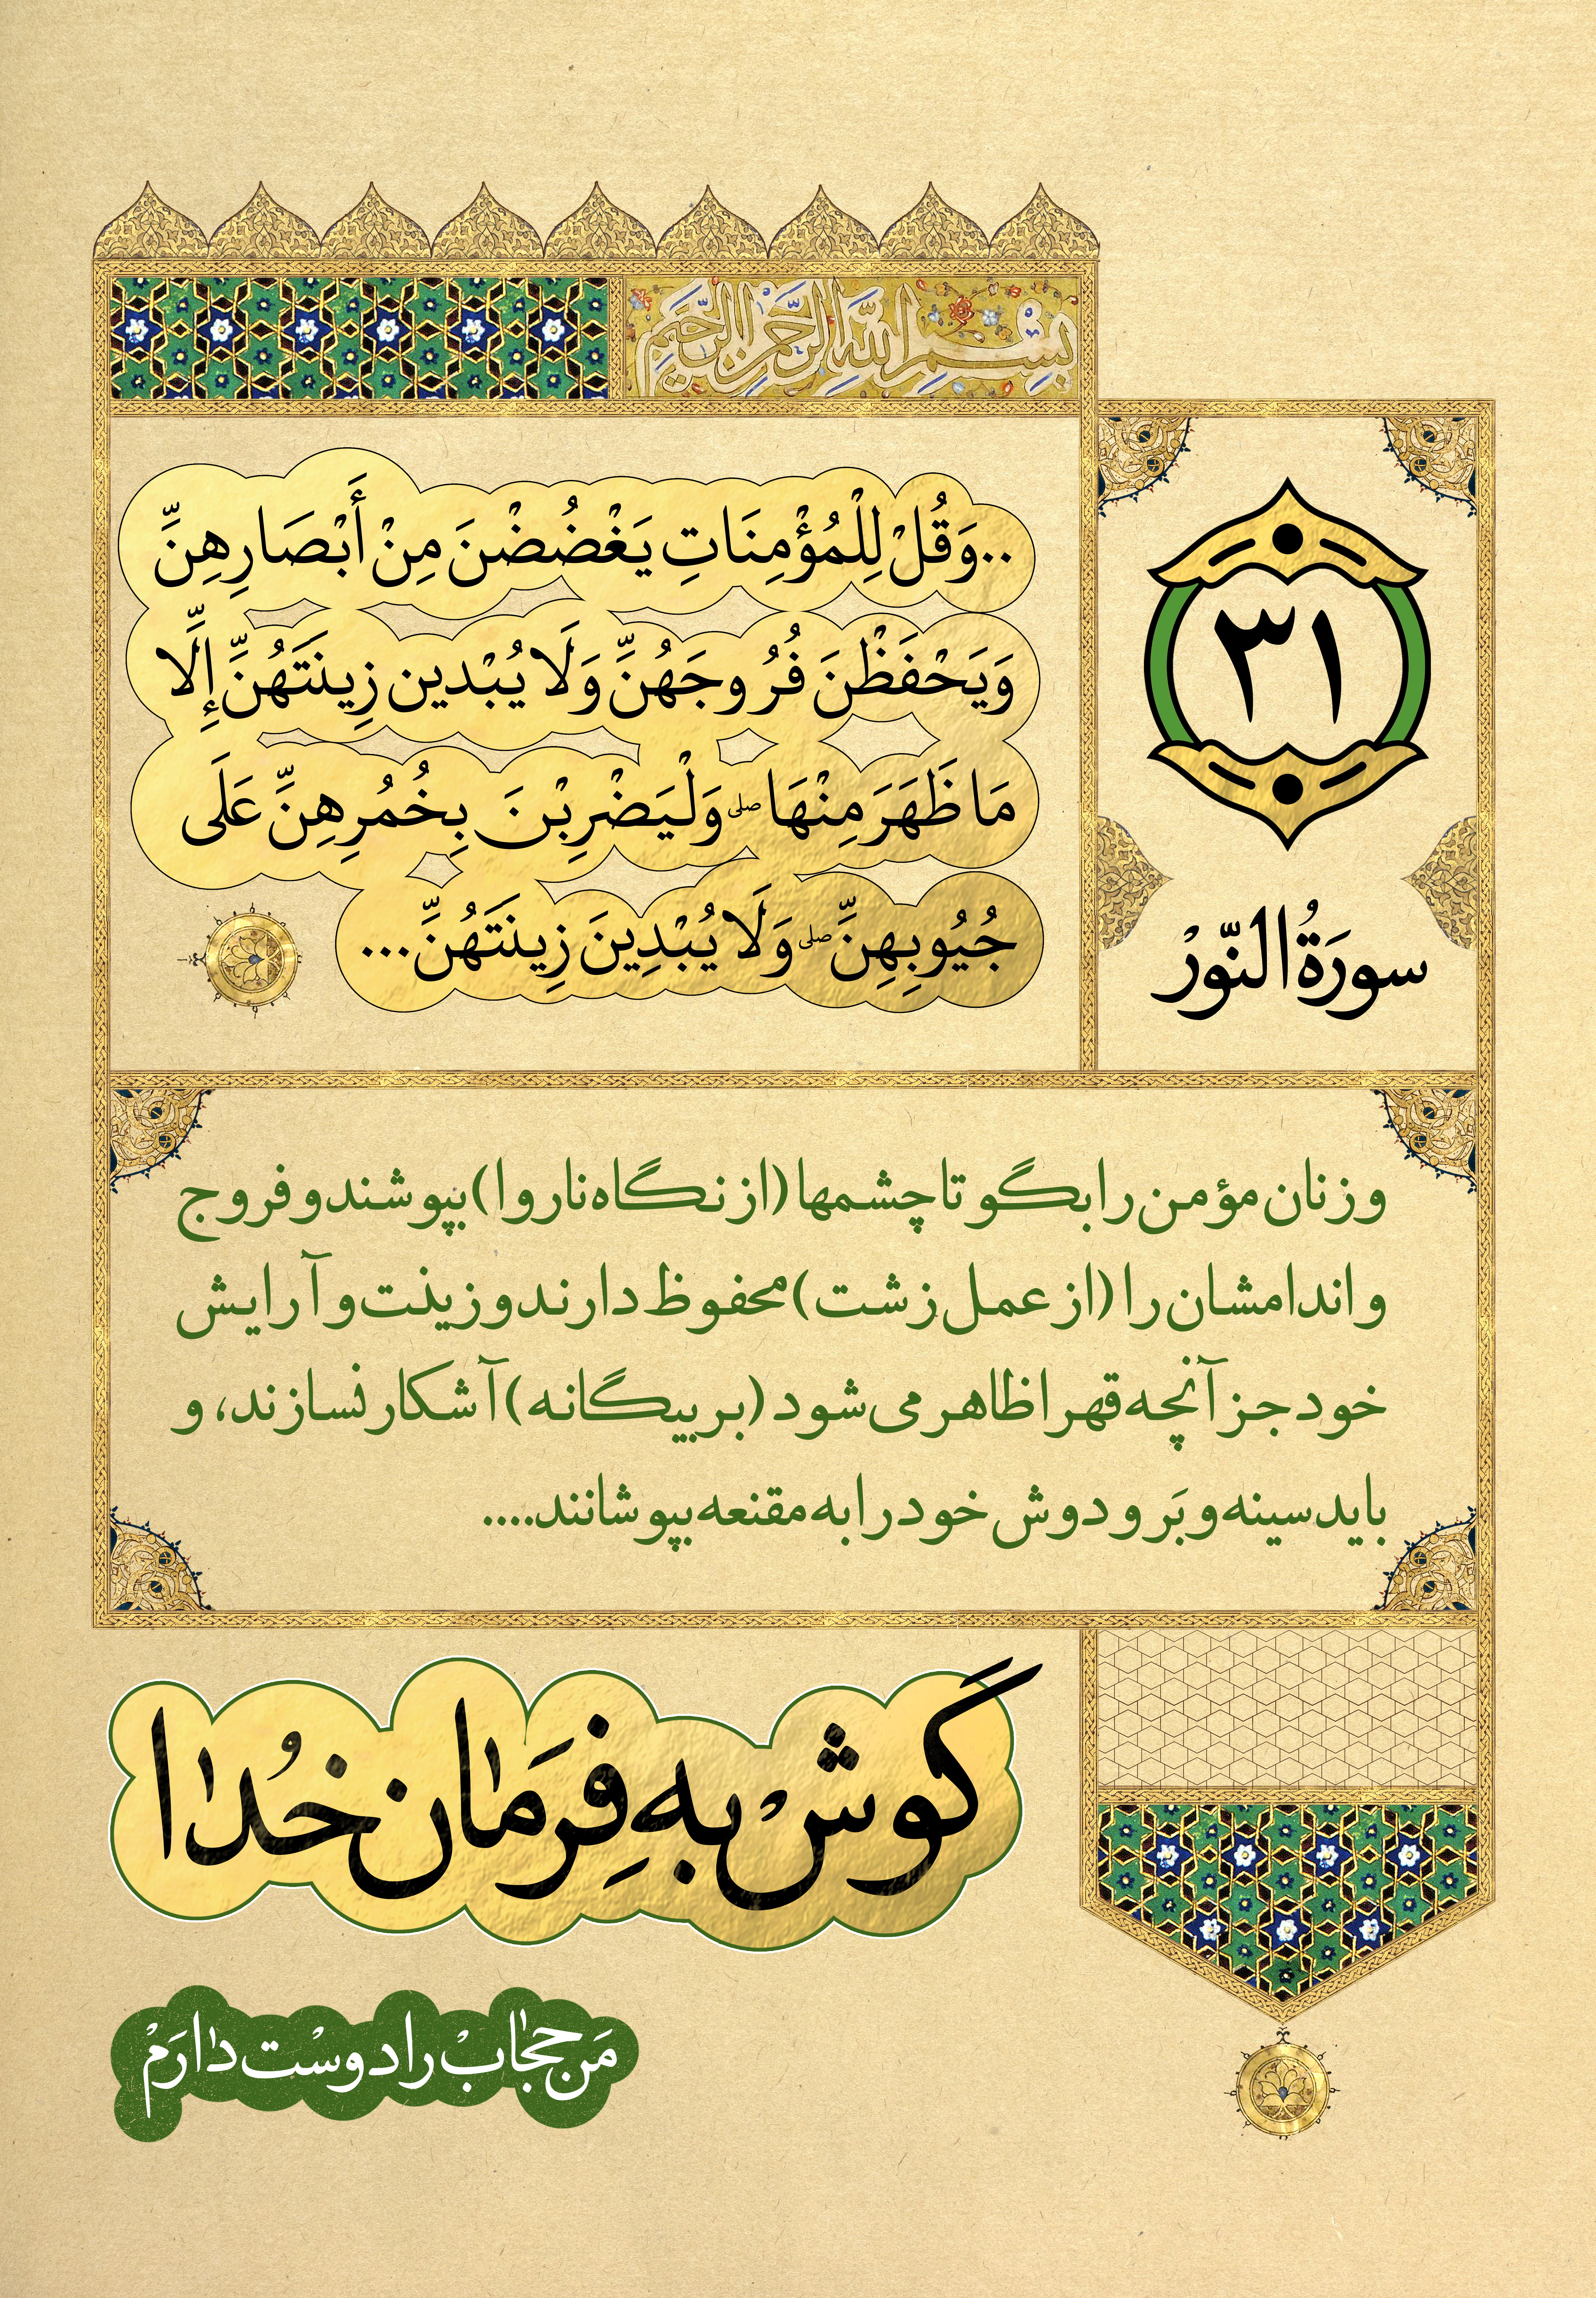 بِسْمِ اللهِ الرَّحْمنِ الرَّحيمِ
..وَقُلْ لِلْمُؤْمِنَاتِ يَغْضُضْنَ مِنْ أَبْصَارِهِنَّ
وَيَحْفَظْنَ فُرُوجَهُنَّ وَلَا يُبْدين زِينَتَهُنَّ إِلَّا
مَا ظَهَرَ مِنْهَا صلى وَلْيَضْرِبْنَ بِخُمُرِهِنَّ عَلَى
جُيُوبِهِنَّ صلى وَلَا يُبْدِينَ زِينَتَهُنَّ...
۳۱
سورَةُ النّورْ
و زنان مؤمن را بگو تا چشمها (از نگاه ناروا) بپوشند و فروج
و اندامشان را (از عمل زشت) محفوظ دارند و زینت و آرایش
خود جز آنچه قهرا ظاهر می‌شود (بر بیگانه) آشکار نسازند، و
باید سینه و بَر و دوش خود را به مقنعه بپوشانند....
گوشْ به فِرمَان خُدا
مَن حجابْ را دوسْت دارَمْ